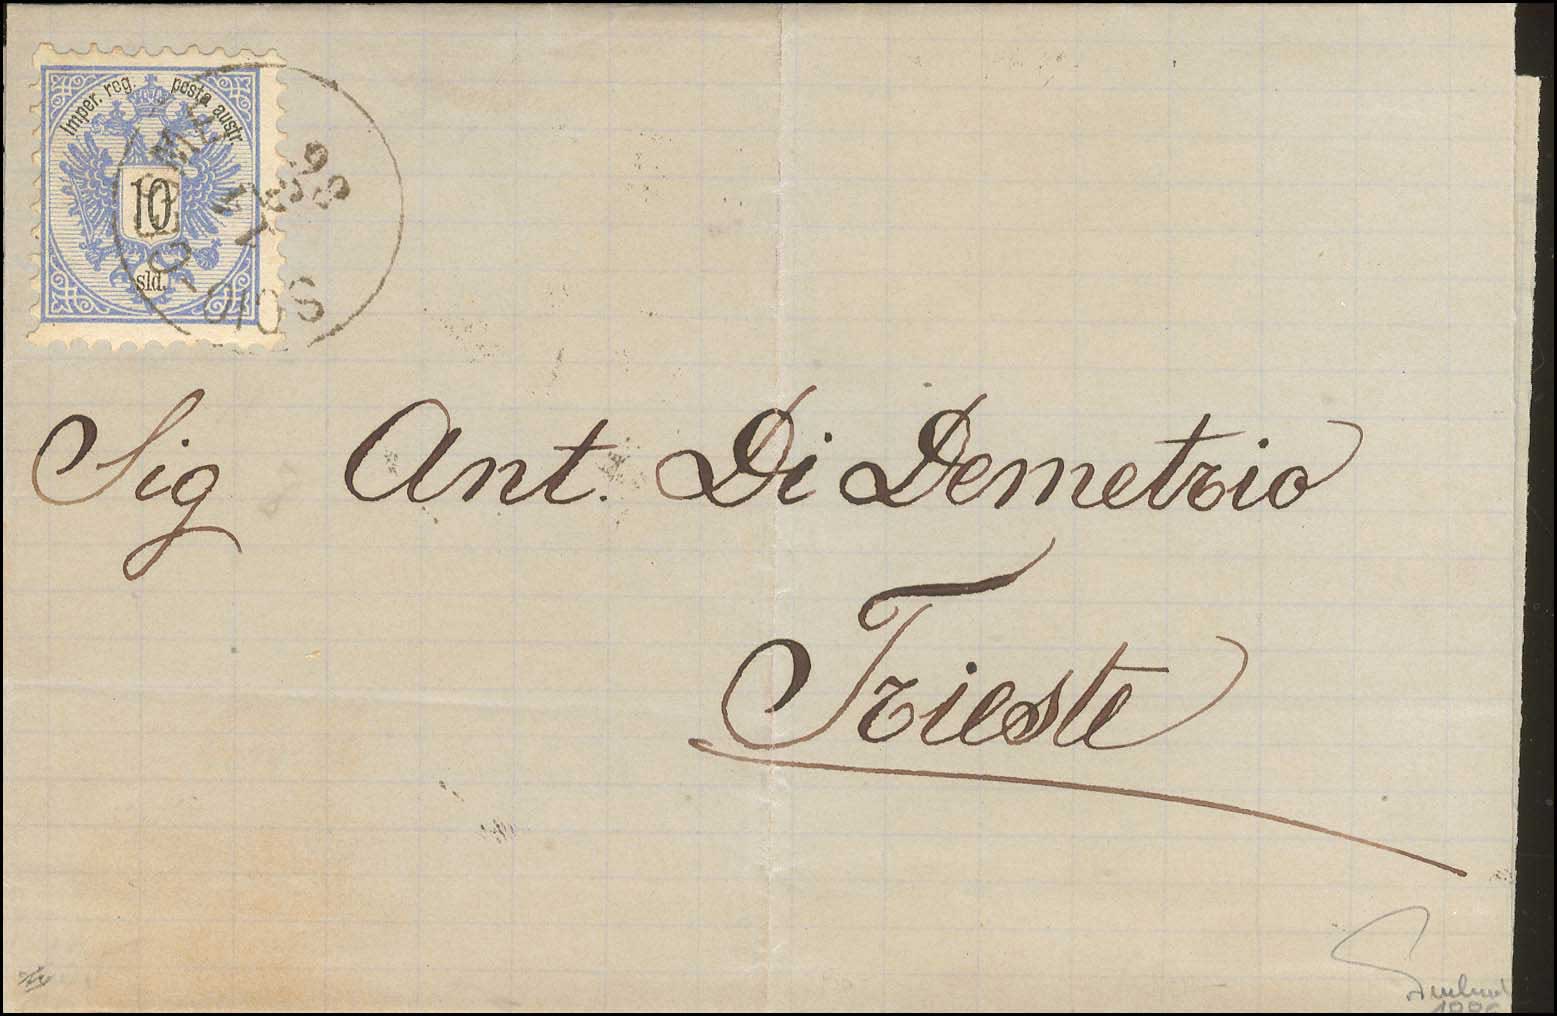 Imper. reg. posta austr.
10
sld.
Sig Ant. Di Demetrio
Trieste